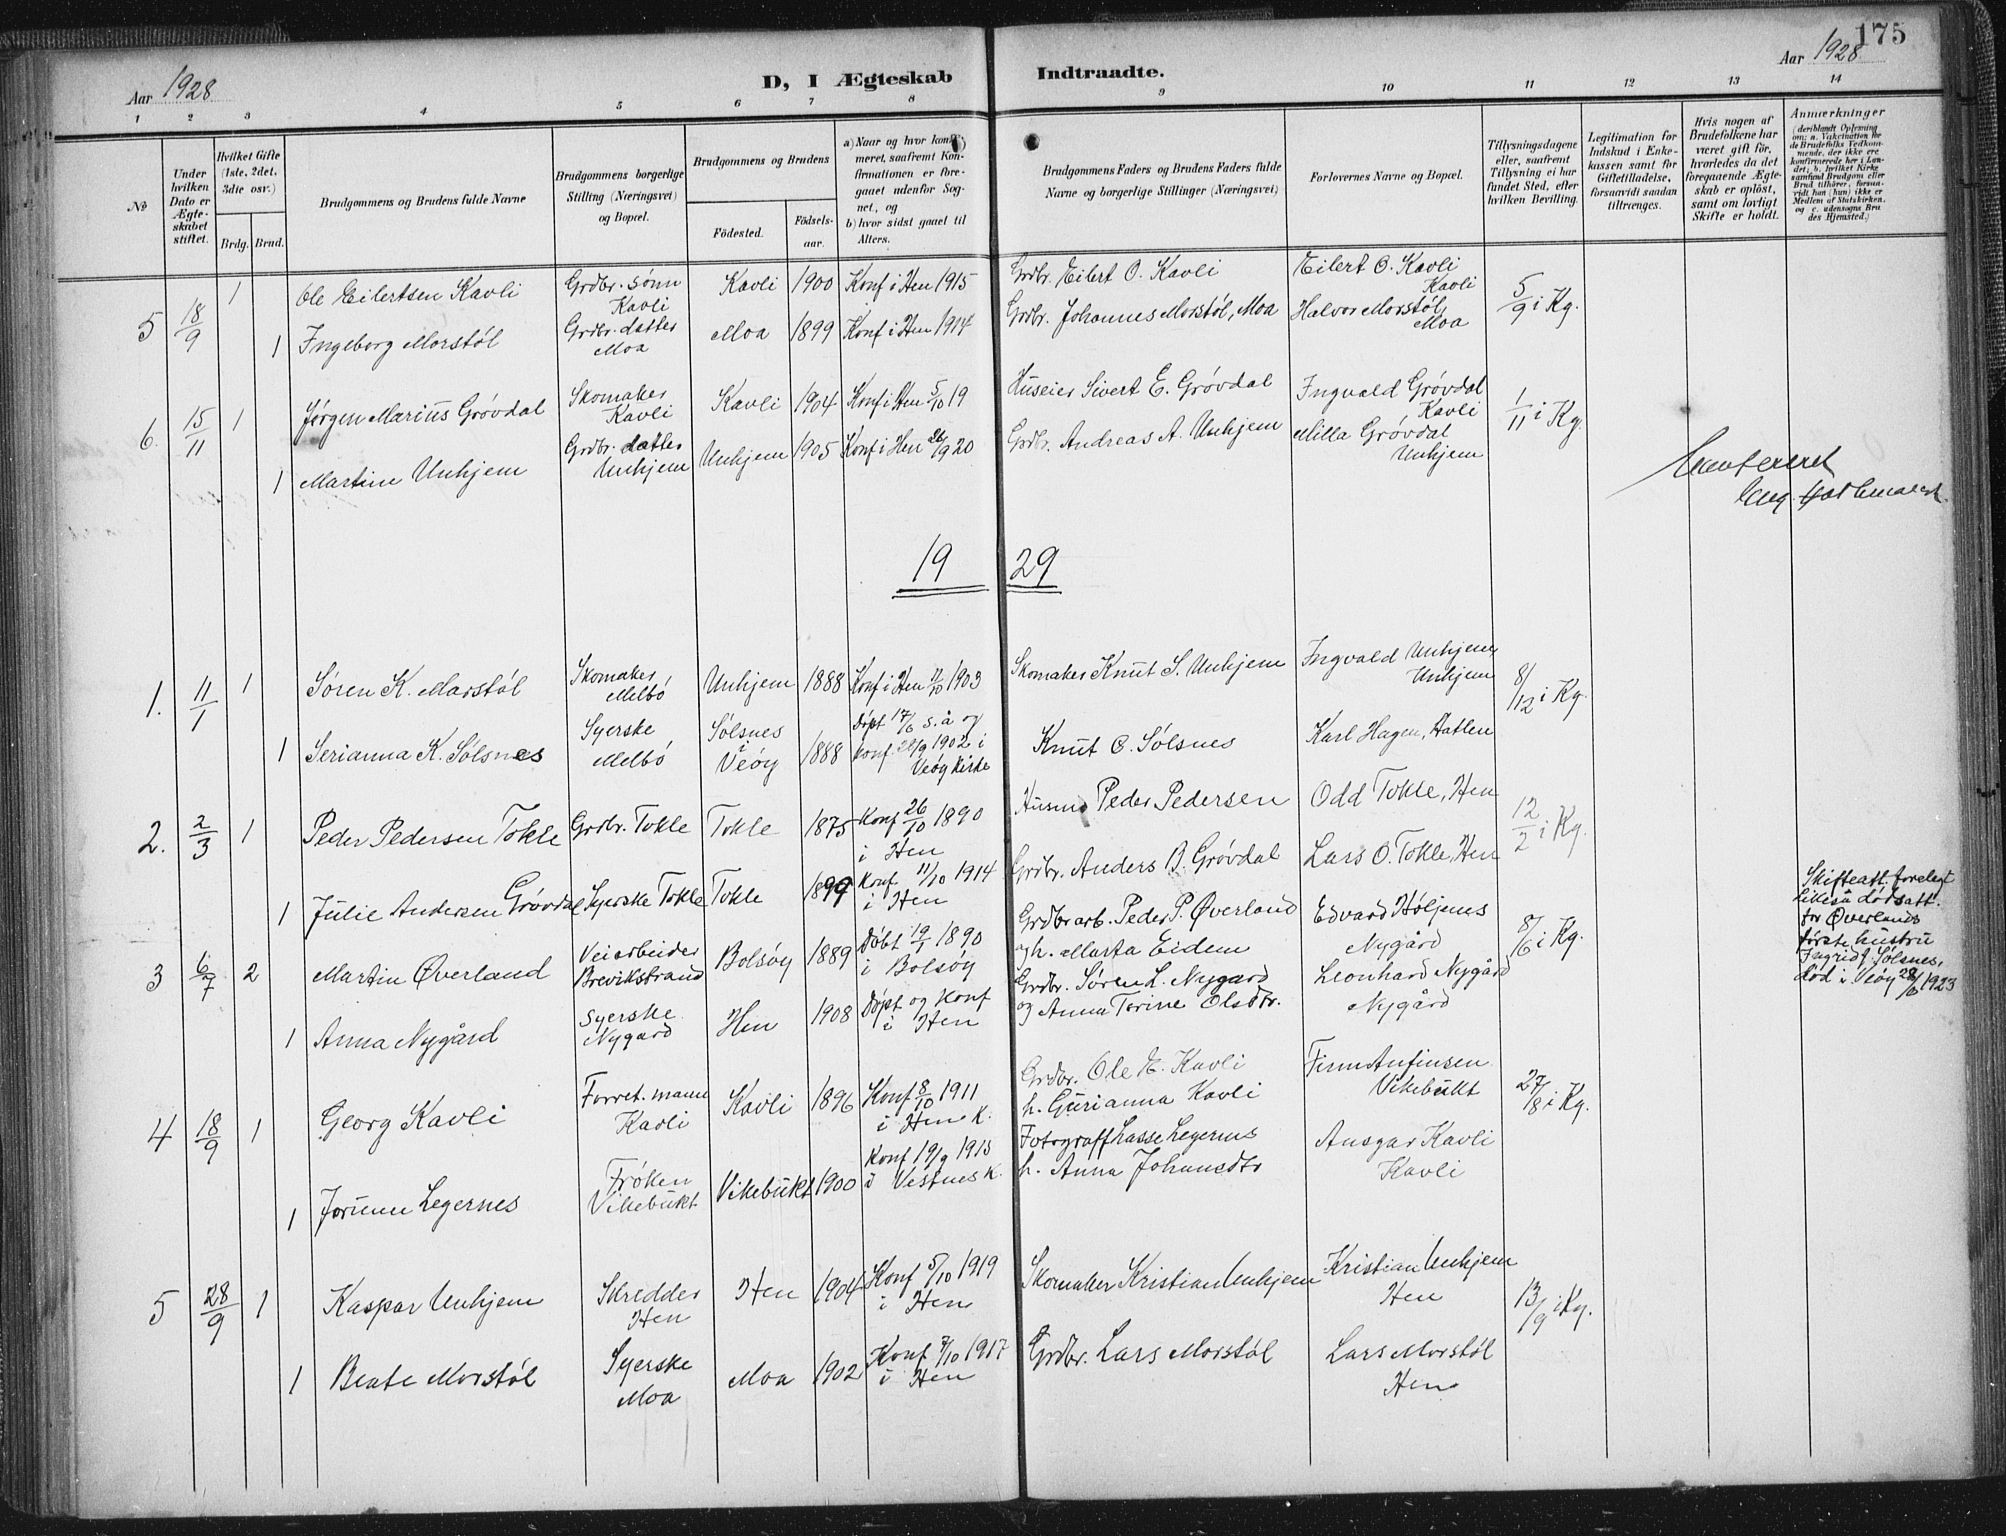 175
Aar 1928
D, I Ægteskab Indtraadte.
Aar 1928
1 2 3 4 5 6 7 8 9 10 11 12 13 14
No
Under hvilken Dato er Ægteskabet stiftet.
Hvilket Gifte (1ste, 2det, 3die osv.)
Brdg. Brud.
Brudgommens og Brudens fulde Navne
Brudgommens borgerlige Stilling (Næringsvei) og Bopæl.
Brudgommens og Brudens
Födested.
Födsels-aar.
a) Naar og hvor konfirmeret, saafremt Konfirmationen er foregaaet udenfor Sognet, og
b) hvor sidst gaaet til Alters.
Brudgommens Faders og Brudens Faders fulde Navne og borgerlige Stillinger (Næringsvei)
Forlovernes Navne og Bopæl.
Tillysningsdagene eller, saafremt Tillysning ei har fundet Sted, efter hvilken Bevilling.
Legitimation for Indskud i Enkekassen samt for Giftetilladelse, forsaavidt saadan tiltrænges.
Hvis nogen af Brudefolkene har været gift för, hvorledes da det foregaaende Ægteskab er oplöst, samt om lovligt Skifte er holdt.
Anmærkninger
(deriblandt Oplysning om: a. Vakcination for de Brudefolks Vedkommende, der ikke ere konfirmerede her i Landet; b. hvilket Kirkesamfund Brudgom eller Brud tilhörer, forsaavidt han (hun) ikke er Medlem af Statskirken, og c. udensogns Brudes Hjemsted.)
5 18/9 1 Ole Eilertsen Kavli Grdbr. sønn Kavli Kavli 1900 Konf i Hen 1915 Grdbr. Eilert O. Kavli Eilert O. Kavli Kavli 5/9 i Kg.
1 Ingeborg Morstøl Grdbr. datter Moa Moa 1899 Konf i Hen 1914 Grdbr. Johannes Morstøl, Moa Halvor Morstøl Moa
6. 15/11 1 Jørgen Marius Grøvdal Skomaker Kavli Kavli 1904 Konf i Hen 5/10 19 Huseier Sivert E. Grøvdal Ingvald Grøvdal Kavli 1/11 i Kg
1 Martine Unhjem Grdbr. datter Unhjem Unhjem 1905 Konf i Hen 26/9 20 Grdbr. Andreas A. Unhjem Milla Grøvdal Unhjem
19 29
1. 11/1 1 Søren K. Morstøl Skomaker Melbø Unhjem 1888 Konf i Hen 11/10 1903 Skomaker Knut S. Unhjem Ingvald Unhjem Unhjem 8/12 i Kg.
1 Serianna K. Sølsnes Syerske Melbø Sølsnes i Veøy 1888 Døpt 17/6 s. å og konf 28/9 1902 i Veøy kirke Knut O. Sølsnes Karl Hagen, Hatlen
2. 2/3 1 Peder Pedersen Tokle Grdbr. Tokle Tokle 1875 Konf 26/10 1890 i Hen Husmd Peder Pedersen Odd Tokle, Hen 12/2 i Kg.
1 Julie Andersen Grøvdal Syerske Tokle Tokle 1899 Konf 11/10 1914 i Hen Grdbr. Anders B. Grøvdal Lars O. Tokle, Hen
3 6/7 2 Martin Øverland Veiarbeider Brevikstrand Bolsøy 1889 Døbt 19/1 1890 i Bolsøy Grdbrarb. Peder P. Øverland og h. Marta Eidem Edvard Høljenes Nygård 8/6 i Kg. Skifteatt. forelagt likeså dødsatt. for Øverlands første hustru Ingrid f. Sølsnes, død i Veøy 28/6 1923
1 Anna Nygård Syerske Nygard Hen 1908 Døpt og Konf i Hen Grdbr. Søren L. Nygard og Anna Torine Olsdtr. Leonhard Nygård Nygård
4 18/9 1 Georg Kavli Forret. mann Kavli Kavli 1896 Konf 8/10 1911 i Hen K. Grdbr. Ole E. Kavli h. Gurianna Kavli Finn Anfinsen Vikebukt 27/8 i Kg.
1 Jorunn Legernes Frøken Vikebukt Vikebukt 1900 Konf 19/9 1915 i Vestnes K. Fotograff Lasse Legernes h. Anna Johansdtr Ansgar Kavli Kavli
5 28/9 1 Kaspar Unhjem Skredder Hen Hen 1904 Konf 5/10 1919 i Hen Skomaker Kristian Unhjem Kristian Unhjem Hen 13/9 i Kg.
1 Beate Morstøl Syerske Moa Moa 1902 Konf 7/10 1917 i Hen Grdbr. Lars Morstøl Lars Morstøl Hen